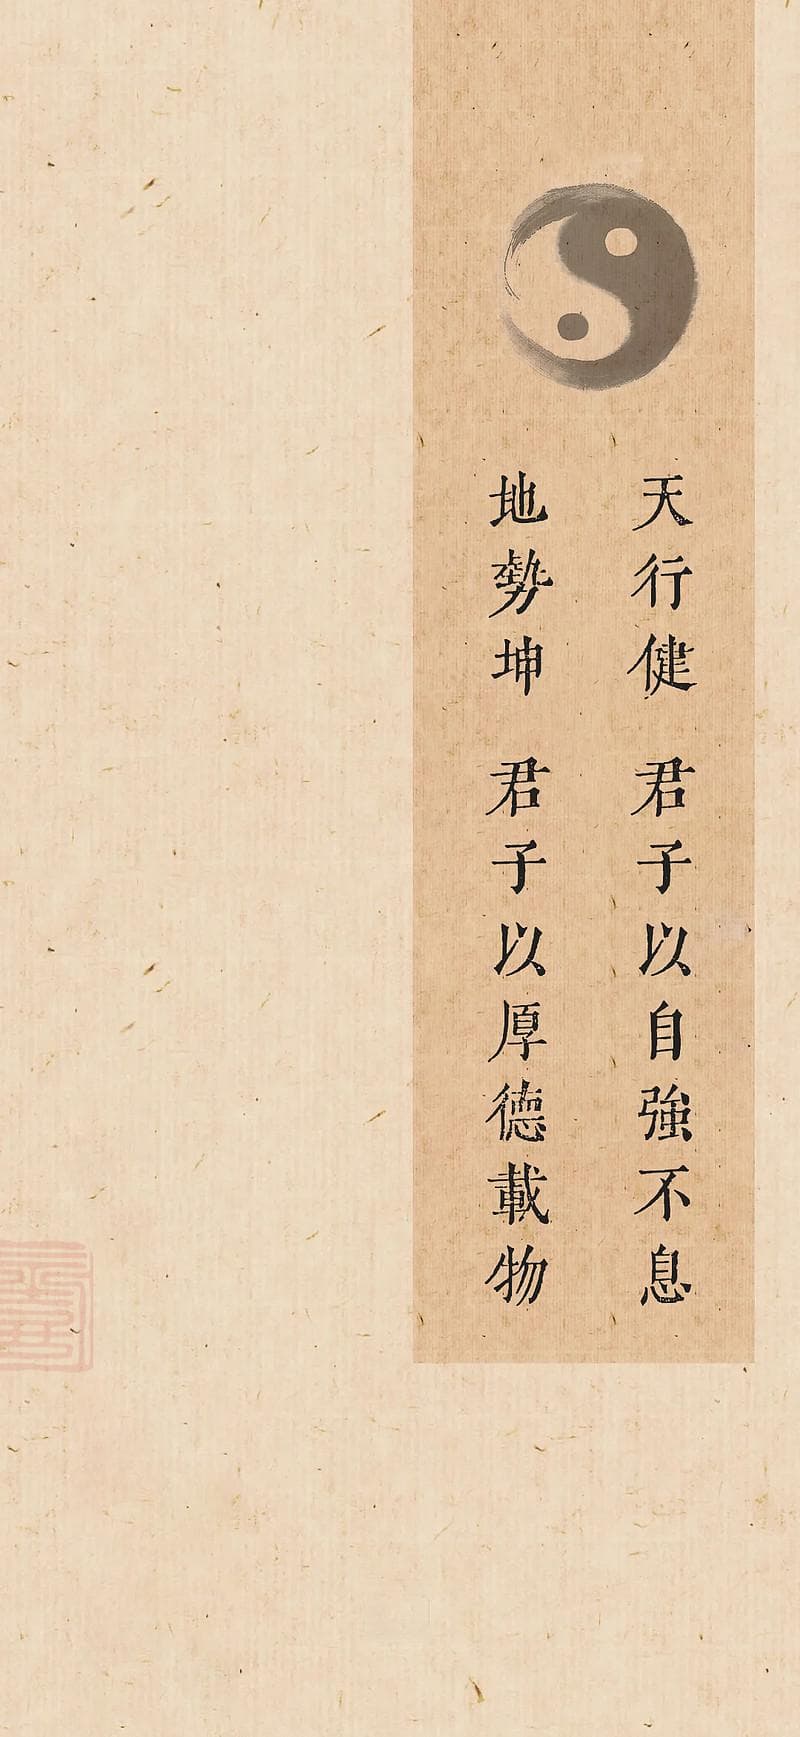 天行健 君子以自強不息
地勢坤 君子以厚德載物